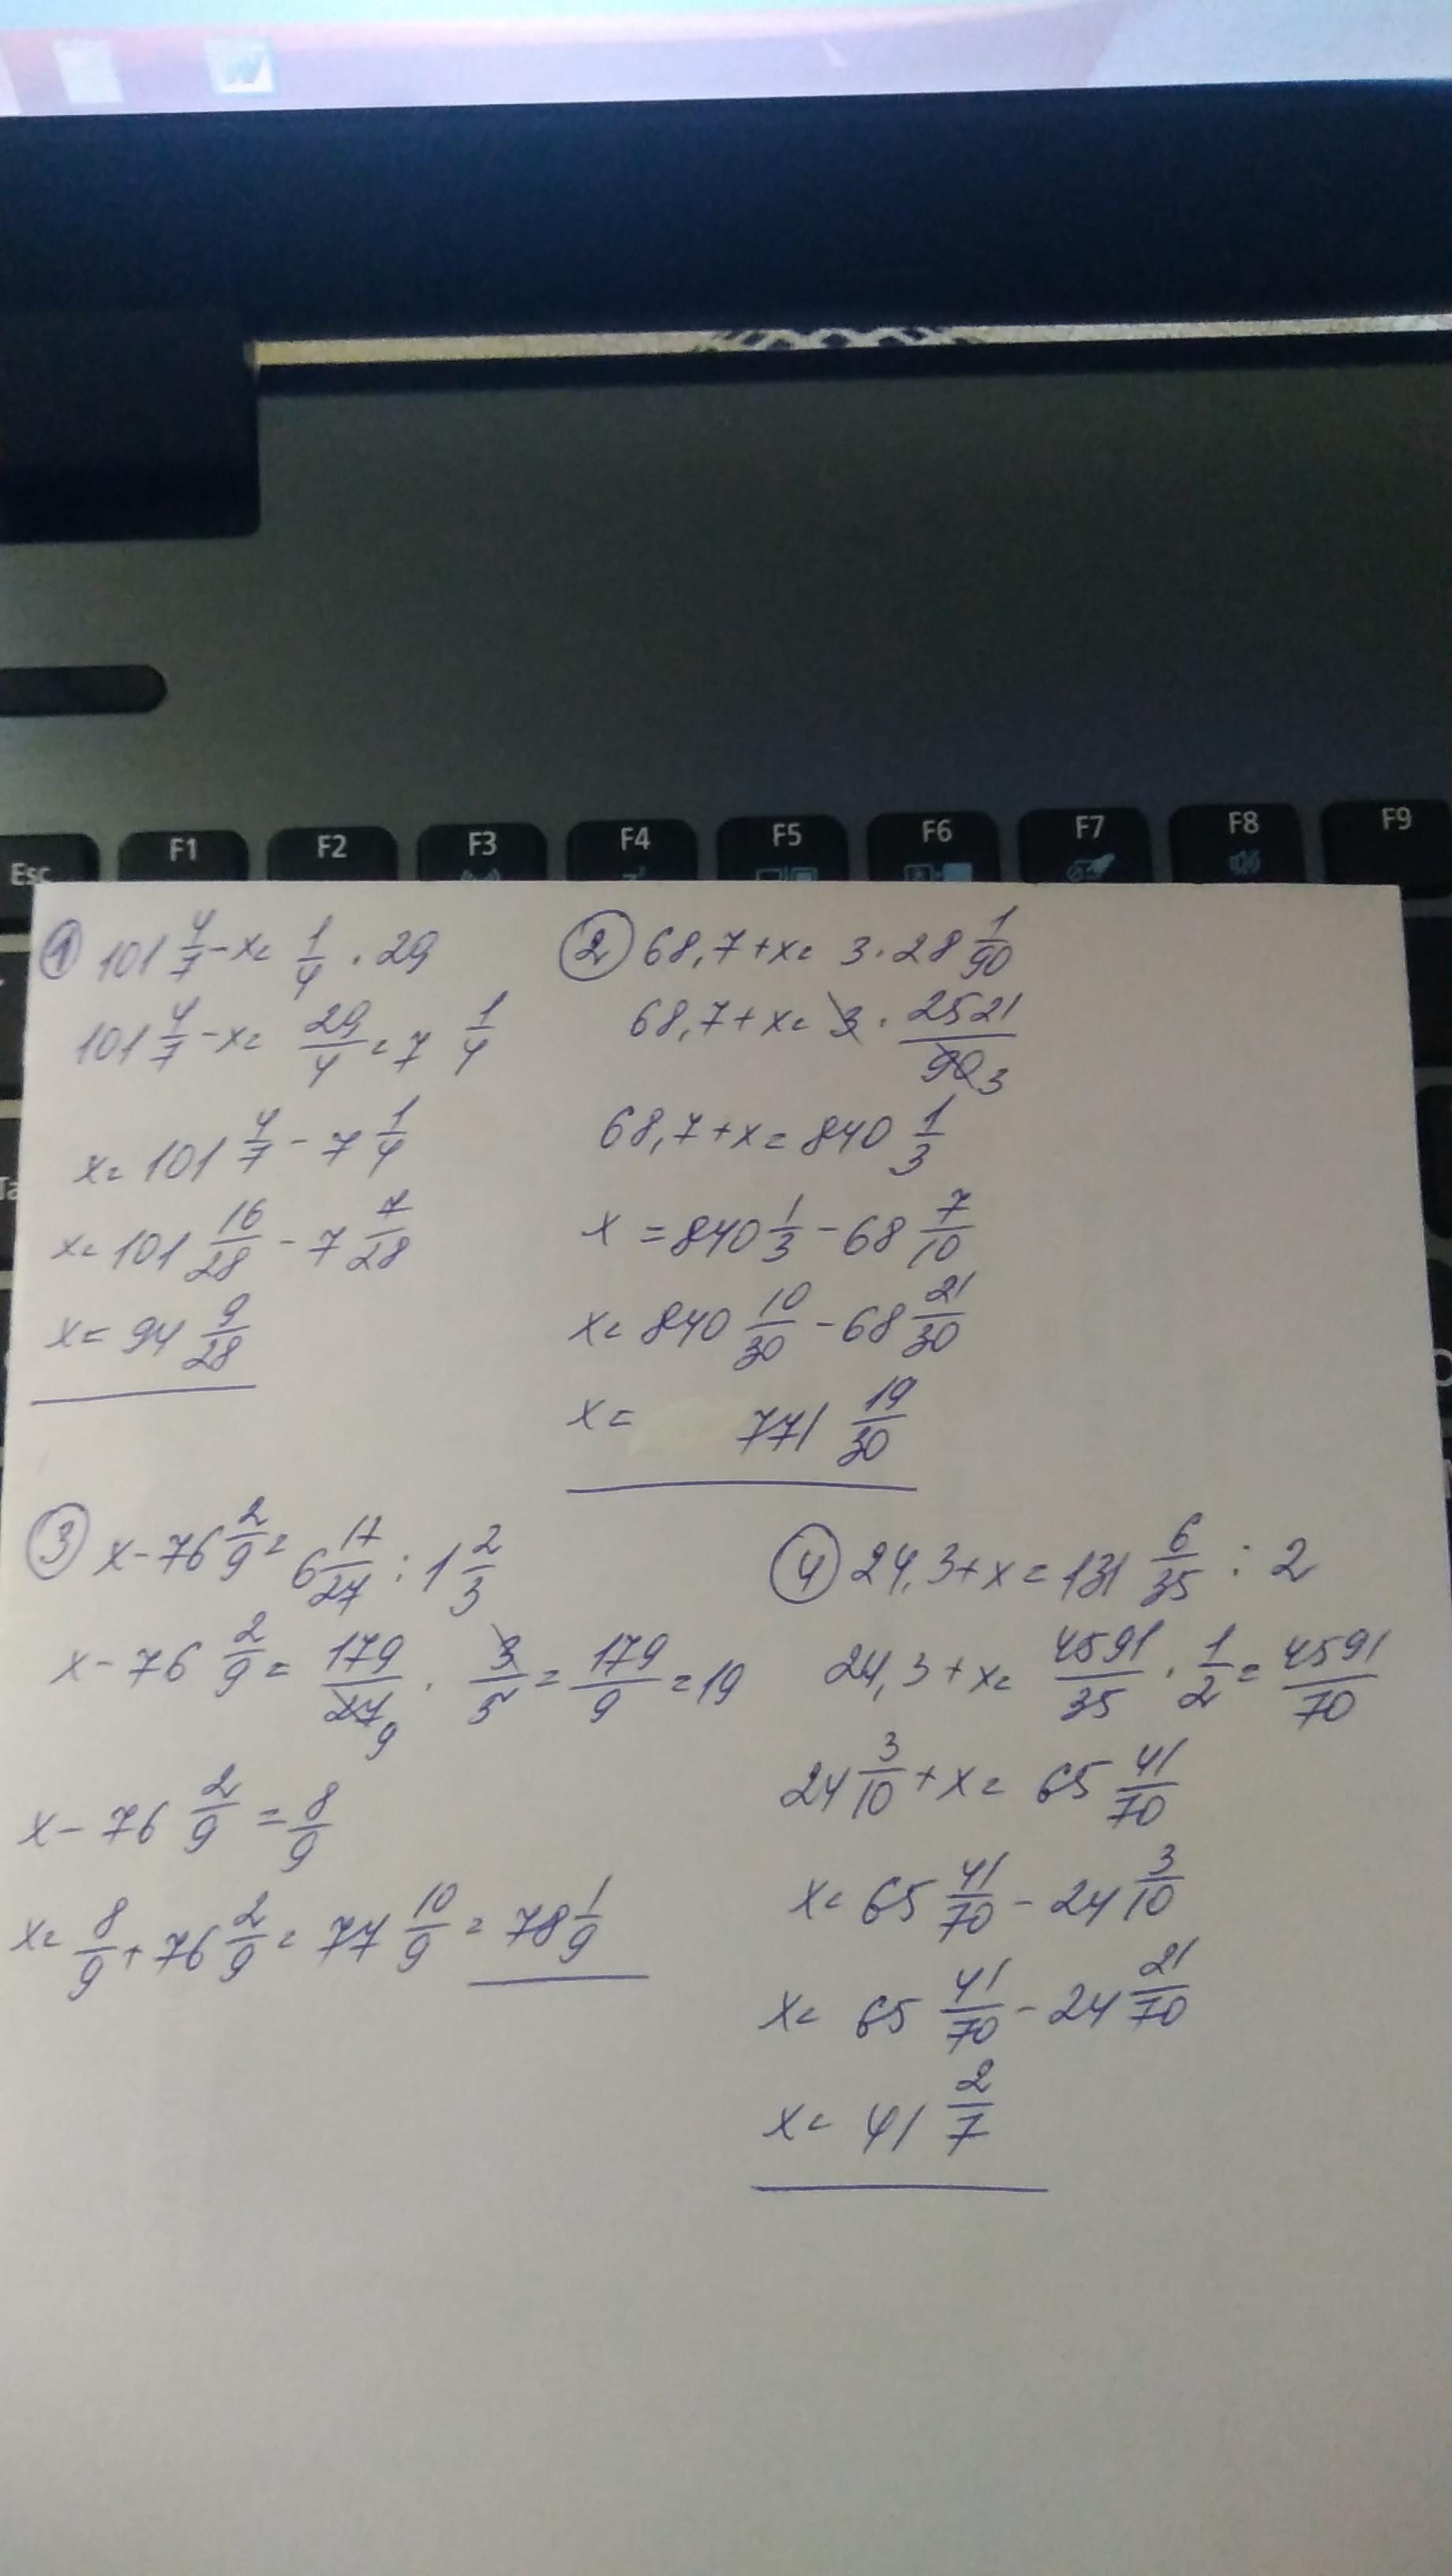 Esc F1 F2 F3 F4 F5 F6 F7 F8 F9
① 101 4/7 - x = 1/4 · 29
101 4/7 - x = 29/4 = 7 1/4
x = 101 4/7 - 7 1/4
x = 101 16/28 - 7 7/28
x = 94 9/28
② 68,7 + x = 3 · 28 1/90
68,7 + x = 3 · 2521/90 3
68,7 + x = 840 1/3
x = 840 1/3 - 68 7/10
x = 840 10/30 - 68 21/30
x = 771 19/30
③ x - 76 2/9 = 6 17/27 : 1 2/3
x - 76 2/9 = 179/27 9 · 3/5 = 179/9 = 19
x - 76 2/9 = 8/9
x = 8/9 + 76 2/9 = 77 10/9 = 78 1/9
④ 24,3 + x = 131 6/35 : 2
24,3 + x = 4591/35 · 1/2 = 4591/70
24 3/10 + x = 65 41/70
x = 65 41/70 - 24 3/10
x = 65 41/70 - 24 21/70
x = 41 2/7